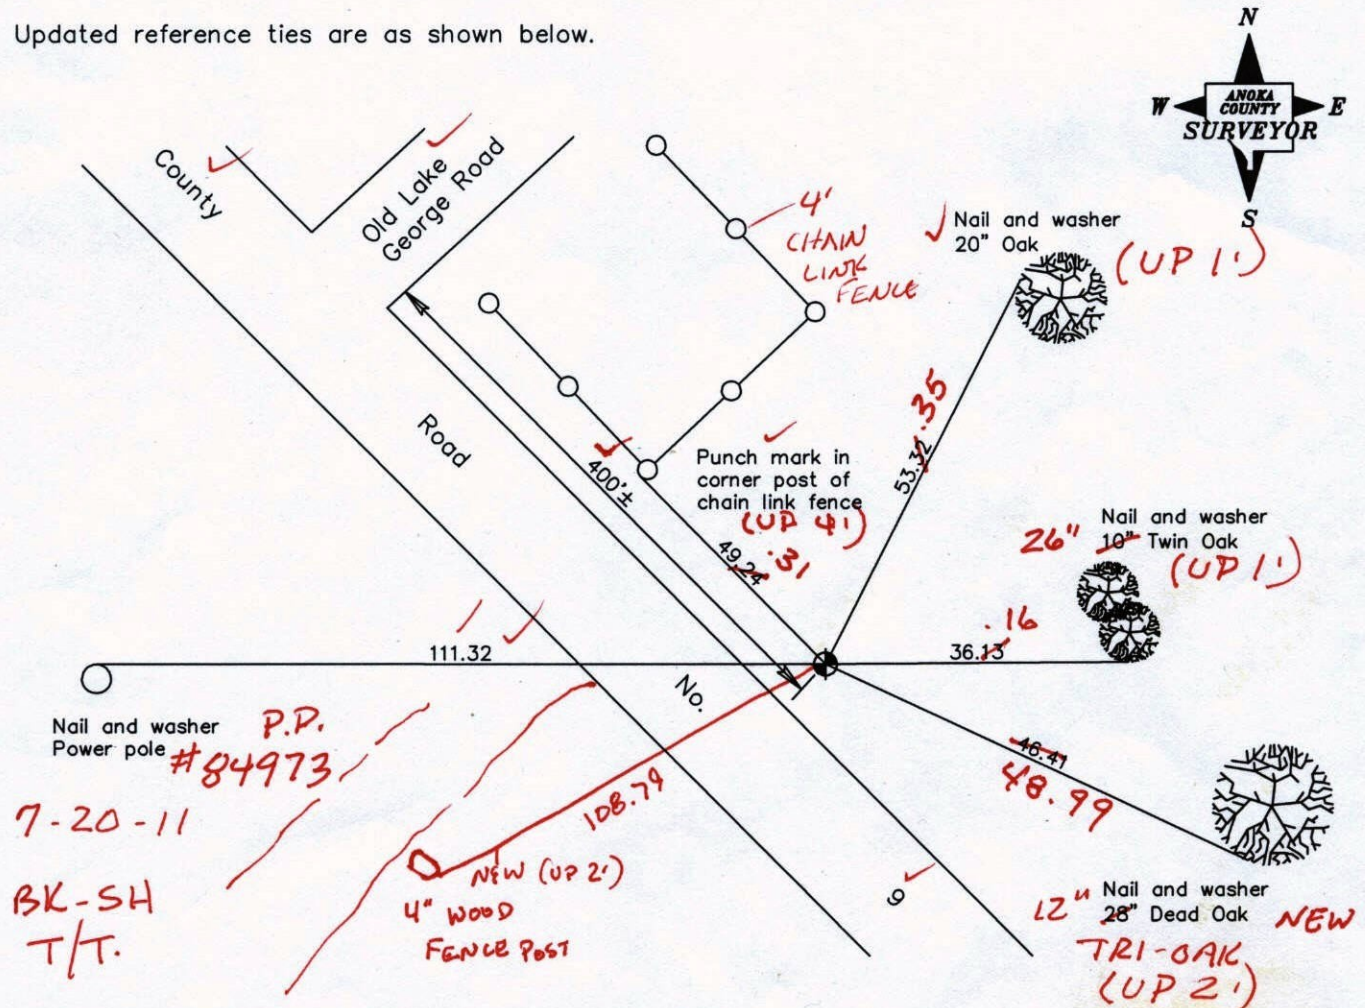 Updated reference ties are as shown below.
N
W
ANOKA
COUNTY
SURVEYOR
E
S
County
Old Lake
George Road
4'
CHAIN
LINK
FENCE
Nail and washer
20" Oak
(UP 1')
Road
400'±
Punch mark in
corner post of
chain link fence
(UP 4')
49.24
.31
53.32
.35
Nail and washer
26" 10" Twin Oak
(UP 1')
111.32
.16
36.13
No.
Nail and washer
Power pole
P.P.
#84973
46.41
48.99
108.79
7-20-11
BK-SH
T/T.
NEW (UP 2')
4" WOOD
FENCE POST
9
Nail and washer
12" 28" Dead Oak NEW
TRI-OAK
(UP 2')